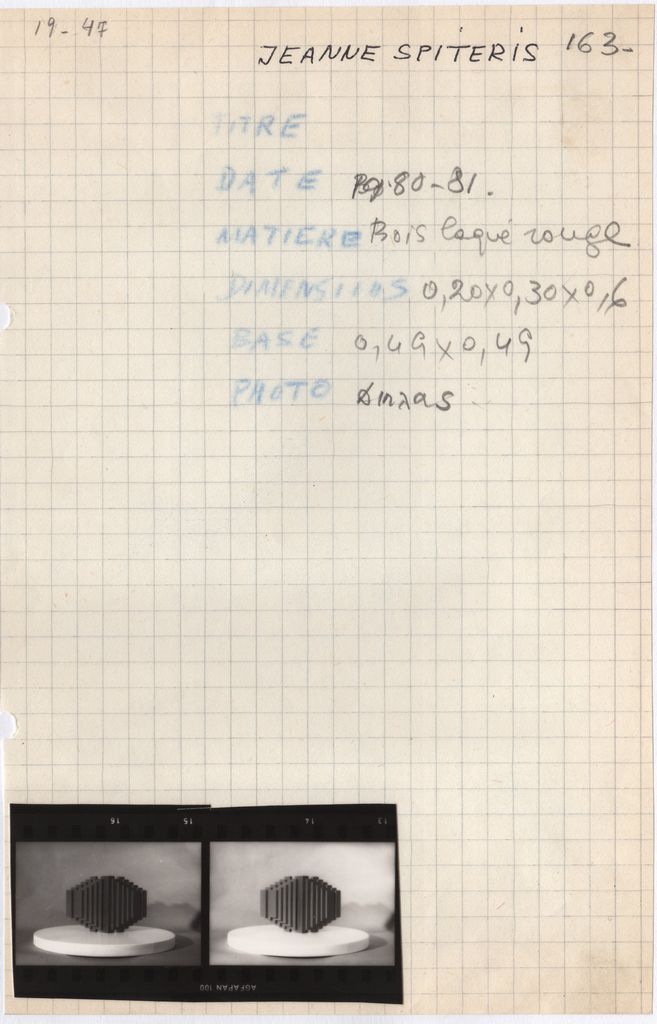 19-47
JEANNE SPITERIS 163-
TITRE
DATE 80-81.
MATIERE Bois laqué rouge
DIMENSIIONS 0,20x0,30x0,16
BASE 0,49x0,49
PHOTO Διπλας
16 15 14 13
AGFAPAN 100